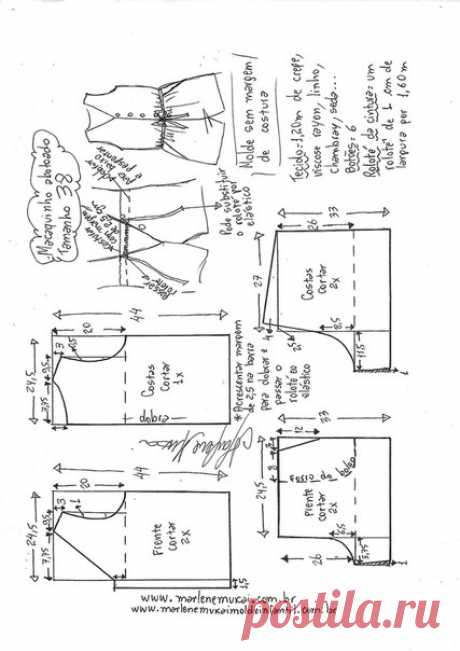 Macaquinho abotoado
Tamanho 38
Molde sem margem
de costura
Tecido=1,20m de crepe,
viscose rayon, linho,
chambray, seda...
Botões= 6
Rolotê de cintura= um
rolotê de 1 cm de
largura por 1,60m
Pode substituir
o rolotê por
elástico
passar
rolotê
44
20
24,5
3
9,5
7,75
Costas
Cortar
1x
dobra
*Acrescentar margem
de 2,5 na barra
para dobrar e
passar o
rolotê ou
elástico
33
26
27
4
2,5
8,5
11,5
1
Costas
Cortar
2x
44
20
24,5
3
1
9,5
7,75
Frente
Cortar
2x
1,5
33
12
24,5
3
8
Frente
cortar
2x
5,5
3,75
26
1
www.marlenemukai.com.br
www.marlenemukaimoldeinfantil.com.br
postila.ru